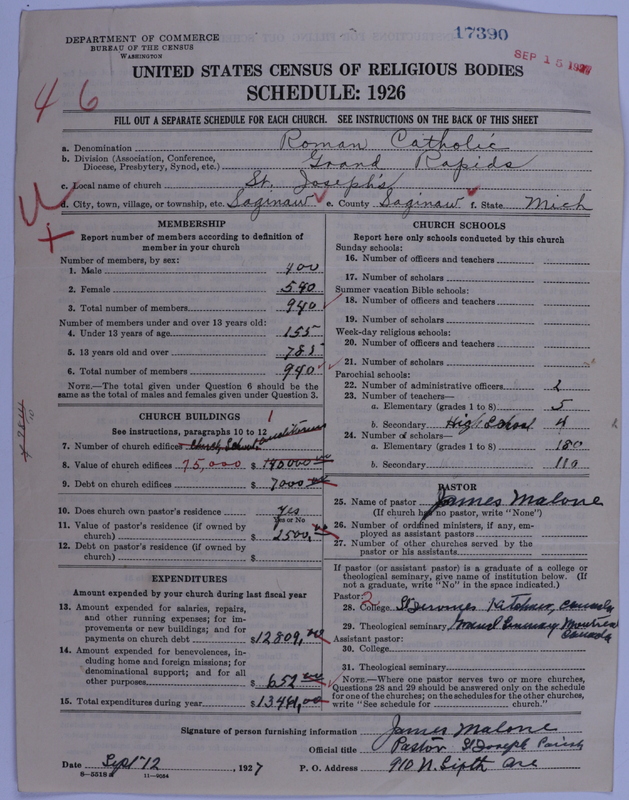 17390
SEP 15 1927
DEPARTMENT OF COMMERCE
BUREAU OF THE CENSUS
WASHINGTON
UNITED STATES CENSUS OF RELIGIOUS BODIES
SCHEDULE: 1926
46
FILL OUT A SEPARATE SCHEDULE FOR EACH CHURCH. SEE INSTRUCTIONS ON THE BACK OF THIS SHEET
a. Denomination Roman Catholic
b. Division (Association, Conference, Diocese, Presbytery, Synod, etc.) Grand Rapids
c. Local name of church St. Joseph's
d. City, town, village, or township, etc. Saginaw e. County Saginaw f. State Mich
MEMBERSHIP
Report number of members according to definition of
member in your church
Number of members, by sex:
1. Male 400
2. Female 540
3. Total number of members 940
Number of members under and over 13 years old:
4. Under 13 years of age 155
5. 13 years old and over 785
6. Total number of members 940
NOTE.—The total given under Question 6 should be the
same as the total of males and females given under Question 3.
CHURCH BUILDINGS
See instructions, paragraphs 10 to 12
7. Number of church edifices 1 Church, School, auditorium
8. Value of church edifices 75,000 $ 140000 00
9. Debt on church edifices $ 7000 00
10. Does church own pastor's residence? Yes
Yes or No
11. Value of pastor's residence (if owned by
church) $ 2500, 00
12. Debt on pastor's residence (if owned by
church) $
EXPENDITURES
Amount expended by your church during last fiscal year
13. Amount expended for salaries, repairs,
and other running expenses; for im-
provements or new buildings; and for
payments on church debt $ 12809, 00
14. Amount expended for benevolences, in-
cluding home and foreign missions; for
denominational support; and for all
other purposes $ 652 00
15. Total expenditures during year $ 13461,00
CHURCH SCHOOLS
Report here only schools conducted by this church
Sunday schools:
16. Number of officers and teachers
17. Number of scholars
Summer vacation Bible schools:
18. Number of officers and teachers
19. Number of scholars
Week-day religious schools:
20. Number of officers and teachers
21. Number of scholars
Parochial schools:
22. Number of administrative officers 2
23. Number of teachers—
a. Elementary (grades 1 to 8) 5
b. Secondary High School 4
24. Number of scholars—
a. Elementary (grades 1 to 8) 180
b. Secondary 110
PASTOR
25. Name of pastor James Malone
(If church has no pastor, write "None")
26. Number of ordained ministers, if any, em-
ployed as assistant pastors
27. Number of other churches served by the
pastor or his assistants
If pastor (or assistant pastor) is a graduate of a college or
theological seminary, give name of institution below. (If
not a graduate, write "No" in the space indicated.)
Pastor: 2
28. College St Jeromes Kitchener, Canada
29. Theological seminary Grand Seminary Montreal Canada
Assistant pastor:
30. College
31. Theological seminary
NOTE.—Where one pastor serves two or more churches,
Questions 28 and 29 should be answered only on the schedule
for one of the churches; on the schedules for the other churches,
write "See schedule for church."
Signature of person furnishing information James Malone
Official title Pastor St Joseph Parish
Date Sept 12, 1927 P. O. Address 910 N. Sixth Ave
8—5518a 11—9054